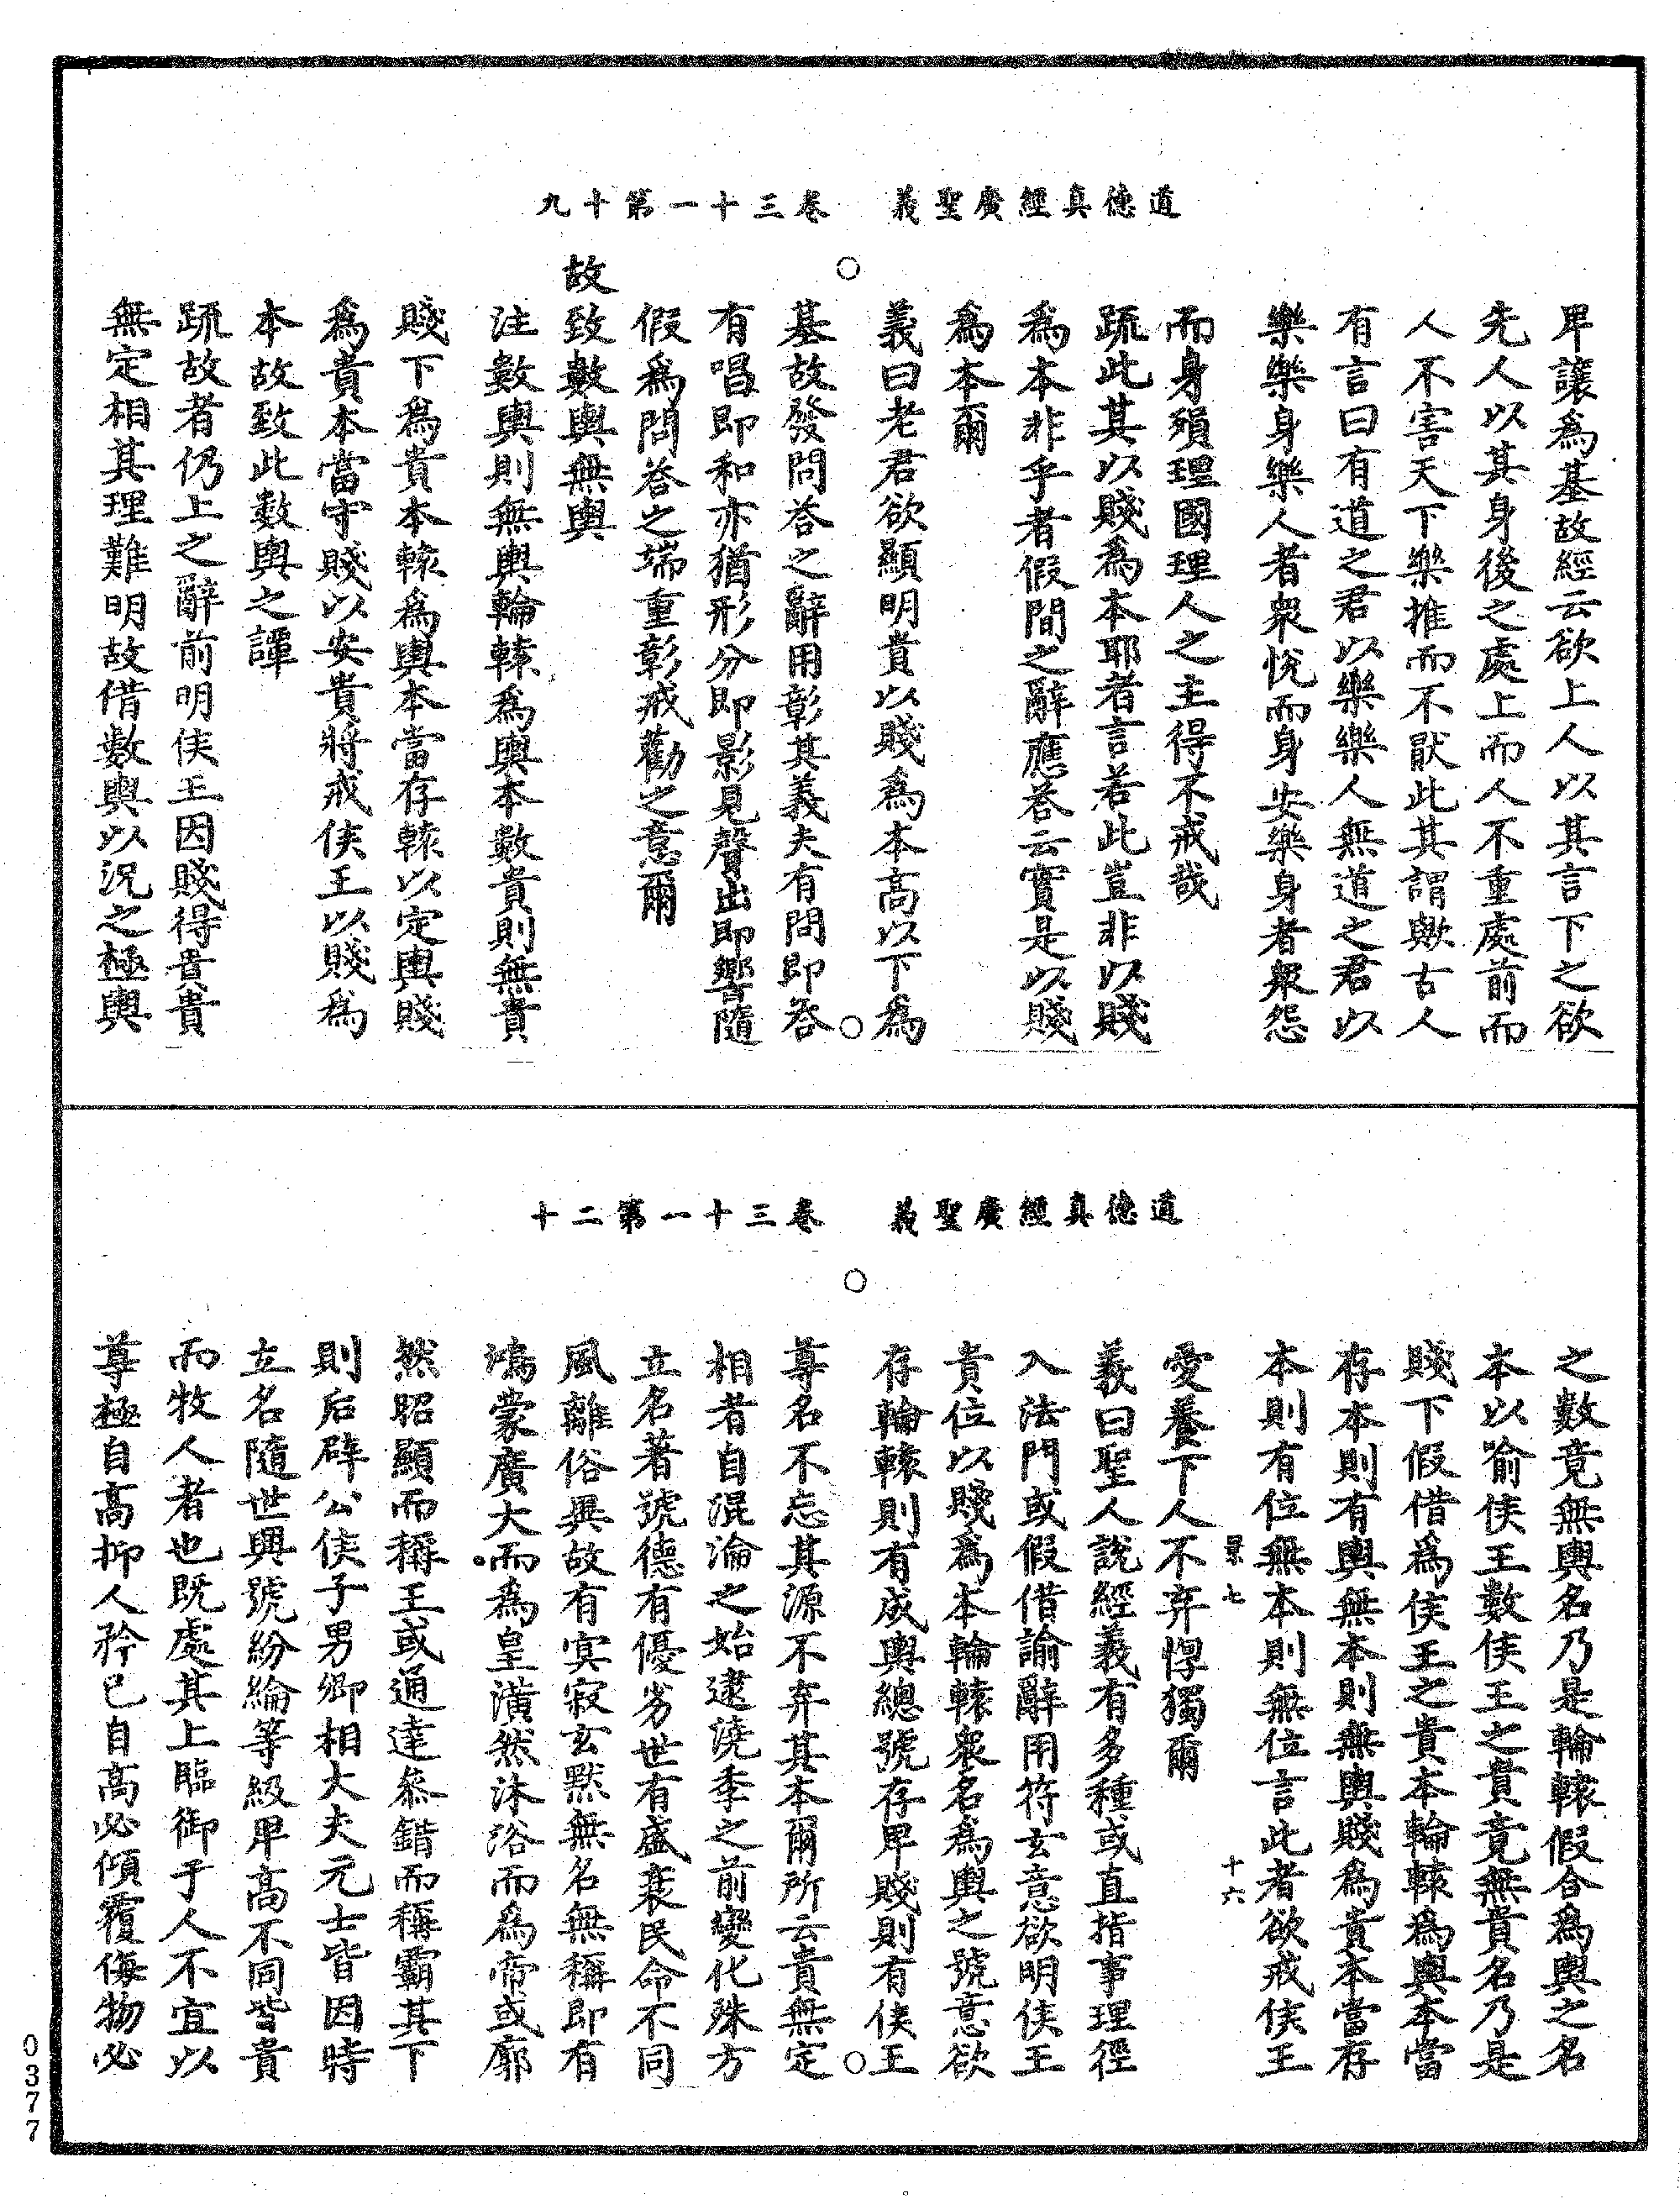 道德真經廣聖義　卷三十一第十九
卑讓爲基故經云欲上人以其言下之欲
先人以其身後之處上而人不重處前而
人不害天下樂推而不猒此其謂歟古人
有言曰有道之君以樂樂人無道之君以
樂樂身樂人者衆悅而身安樂身者衆怨
而身殞理國理人之主得不戒哉
疏此其以賤爲本耶者言若此豈非以賤
爲本非乎者假問之辭應荅云實是以賤
爲本爾
義曰老君欲顯明貴以賤爲本高以下爲
基故發問荅之辭用彰其義夫有問即荅
有唱即和亦猶形分即影見聲出即響隨
假爲問荅之端重彰戒勸之意爾
故致數輿無輿
注數輿則無輿輪轅爲輿本數貴則無貴
賤下爲貴本轅爲輿本當存轅以定輿賤
爲貴本當守賤以安貴將戒侯王以賤爲
本故致此數輿之譚
疏故者仍上之辭前明侯王因賤得貴貴
無定相其理難明故借數輿以況之極輿
道德真經廣聖義　卷三十一第二十
之數竟無輿名乃是輪轅假合爲輿之名
本以喻侯王數侯王之貴竟無貴名乃是
賤下假借爲侯王之貴本輪轅爲輿本當
存本則有輿無本則無輿賤爲貴本當存
本則有位無本則無位言此者欲戒侯王
愛養下人不弃惸獨爾
義曰聖人說經義有多種或直指事理徑
入法門或假借諭辭用符玄意欲明侯王
貴位以賤爲本輪轅衆名爲輿之號意欲
存輪轅則有成輿總號存卑賤則有侯王
尊名不忘其源不弃其本爾所云貴無定
相者自混淪之始逮澆季之前變化殊方
立名著號德有優劣世有盛衰民命不同
風離俗異故有㝠寂玄默無名無稱即有
鴻蒙廣大而爲皇潢然沐浴而爲帝或廓
然昭顯而稱王或通達叅錯而稱霸其下
則后辟公侯子男卿相大夫元士皆因時
立名隨世興號紛綸等級卑高不同皆貴
而牧人者也既處其上臨御于人不宜以
尊極自高抑人矜己自高必傾覆侮物必
十六
0377